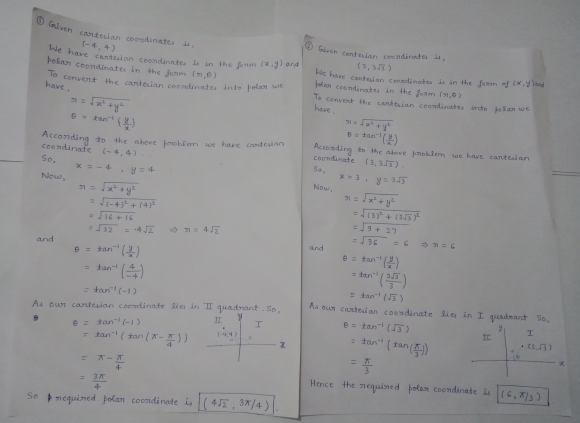 ① Given cartesian coordinates is,
(-4, 4)
We have cartesian coordinates is in the form (x,y) and
polar coordinates in the form (r,θ)
To convert the cartesian coordinates into polar we
have,
r = √x²+y²
θ = tan⁻¹(y/x)
According to the above problem we have cartesian
coordinate (-4, 4).
So,
x = -4 , y = 4
Now,
r = √x²+y²
= √(-4)²+(4)²
= √16+16
= √32 = 4√2 ⇒ r = 4√2
and
θ = tan⁻¹(y/x)
= tan⁻¹(4/-4)
= tan⁻¹(-1)
As our cartesian coordinate lies in II quadrant. So,
θ = tan⁻¹(-1)
= tan⁻¹(tan(π-π/4))
= π-π/4
= 3π/4
y
II I
(-4,4)
x
So required polar coordinate is (4√2, 3π/4).
② Given cartesian coordinates is,
(3, 3√3)
We have cartesian coordinates is in the form of (x,y) and
polar coordinates in the form (r,θ)
To convert the cartesian coordinates into polar we
have,
r = √x²+y²
θ = tan⁻¹(y/x)
According to the above problem we have cartesian
coordinate (3, 3√3).
So,
x = 3 , y = 3√3
Now,
r = √x²+y²
= √(3)²+(3√3)²
= √9+27
= √36 = 6 ⇒ r = 6
and
θ = tan⁻¹(y/x)
= tan⁻¹(3√3/3)
= tan⁻¹(√3)
As our cartesian coordinate lies in I quadrant So,
θ = tan⁻¹(√3)
= tan⁻¹(tan(π/3))
= π/3
y
II I
x
Hence the required polar coordinate is (6, π/3).